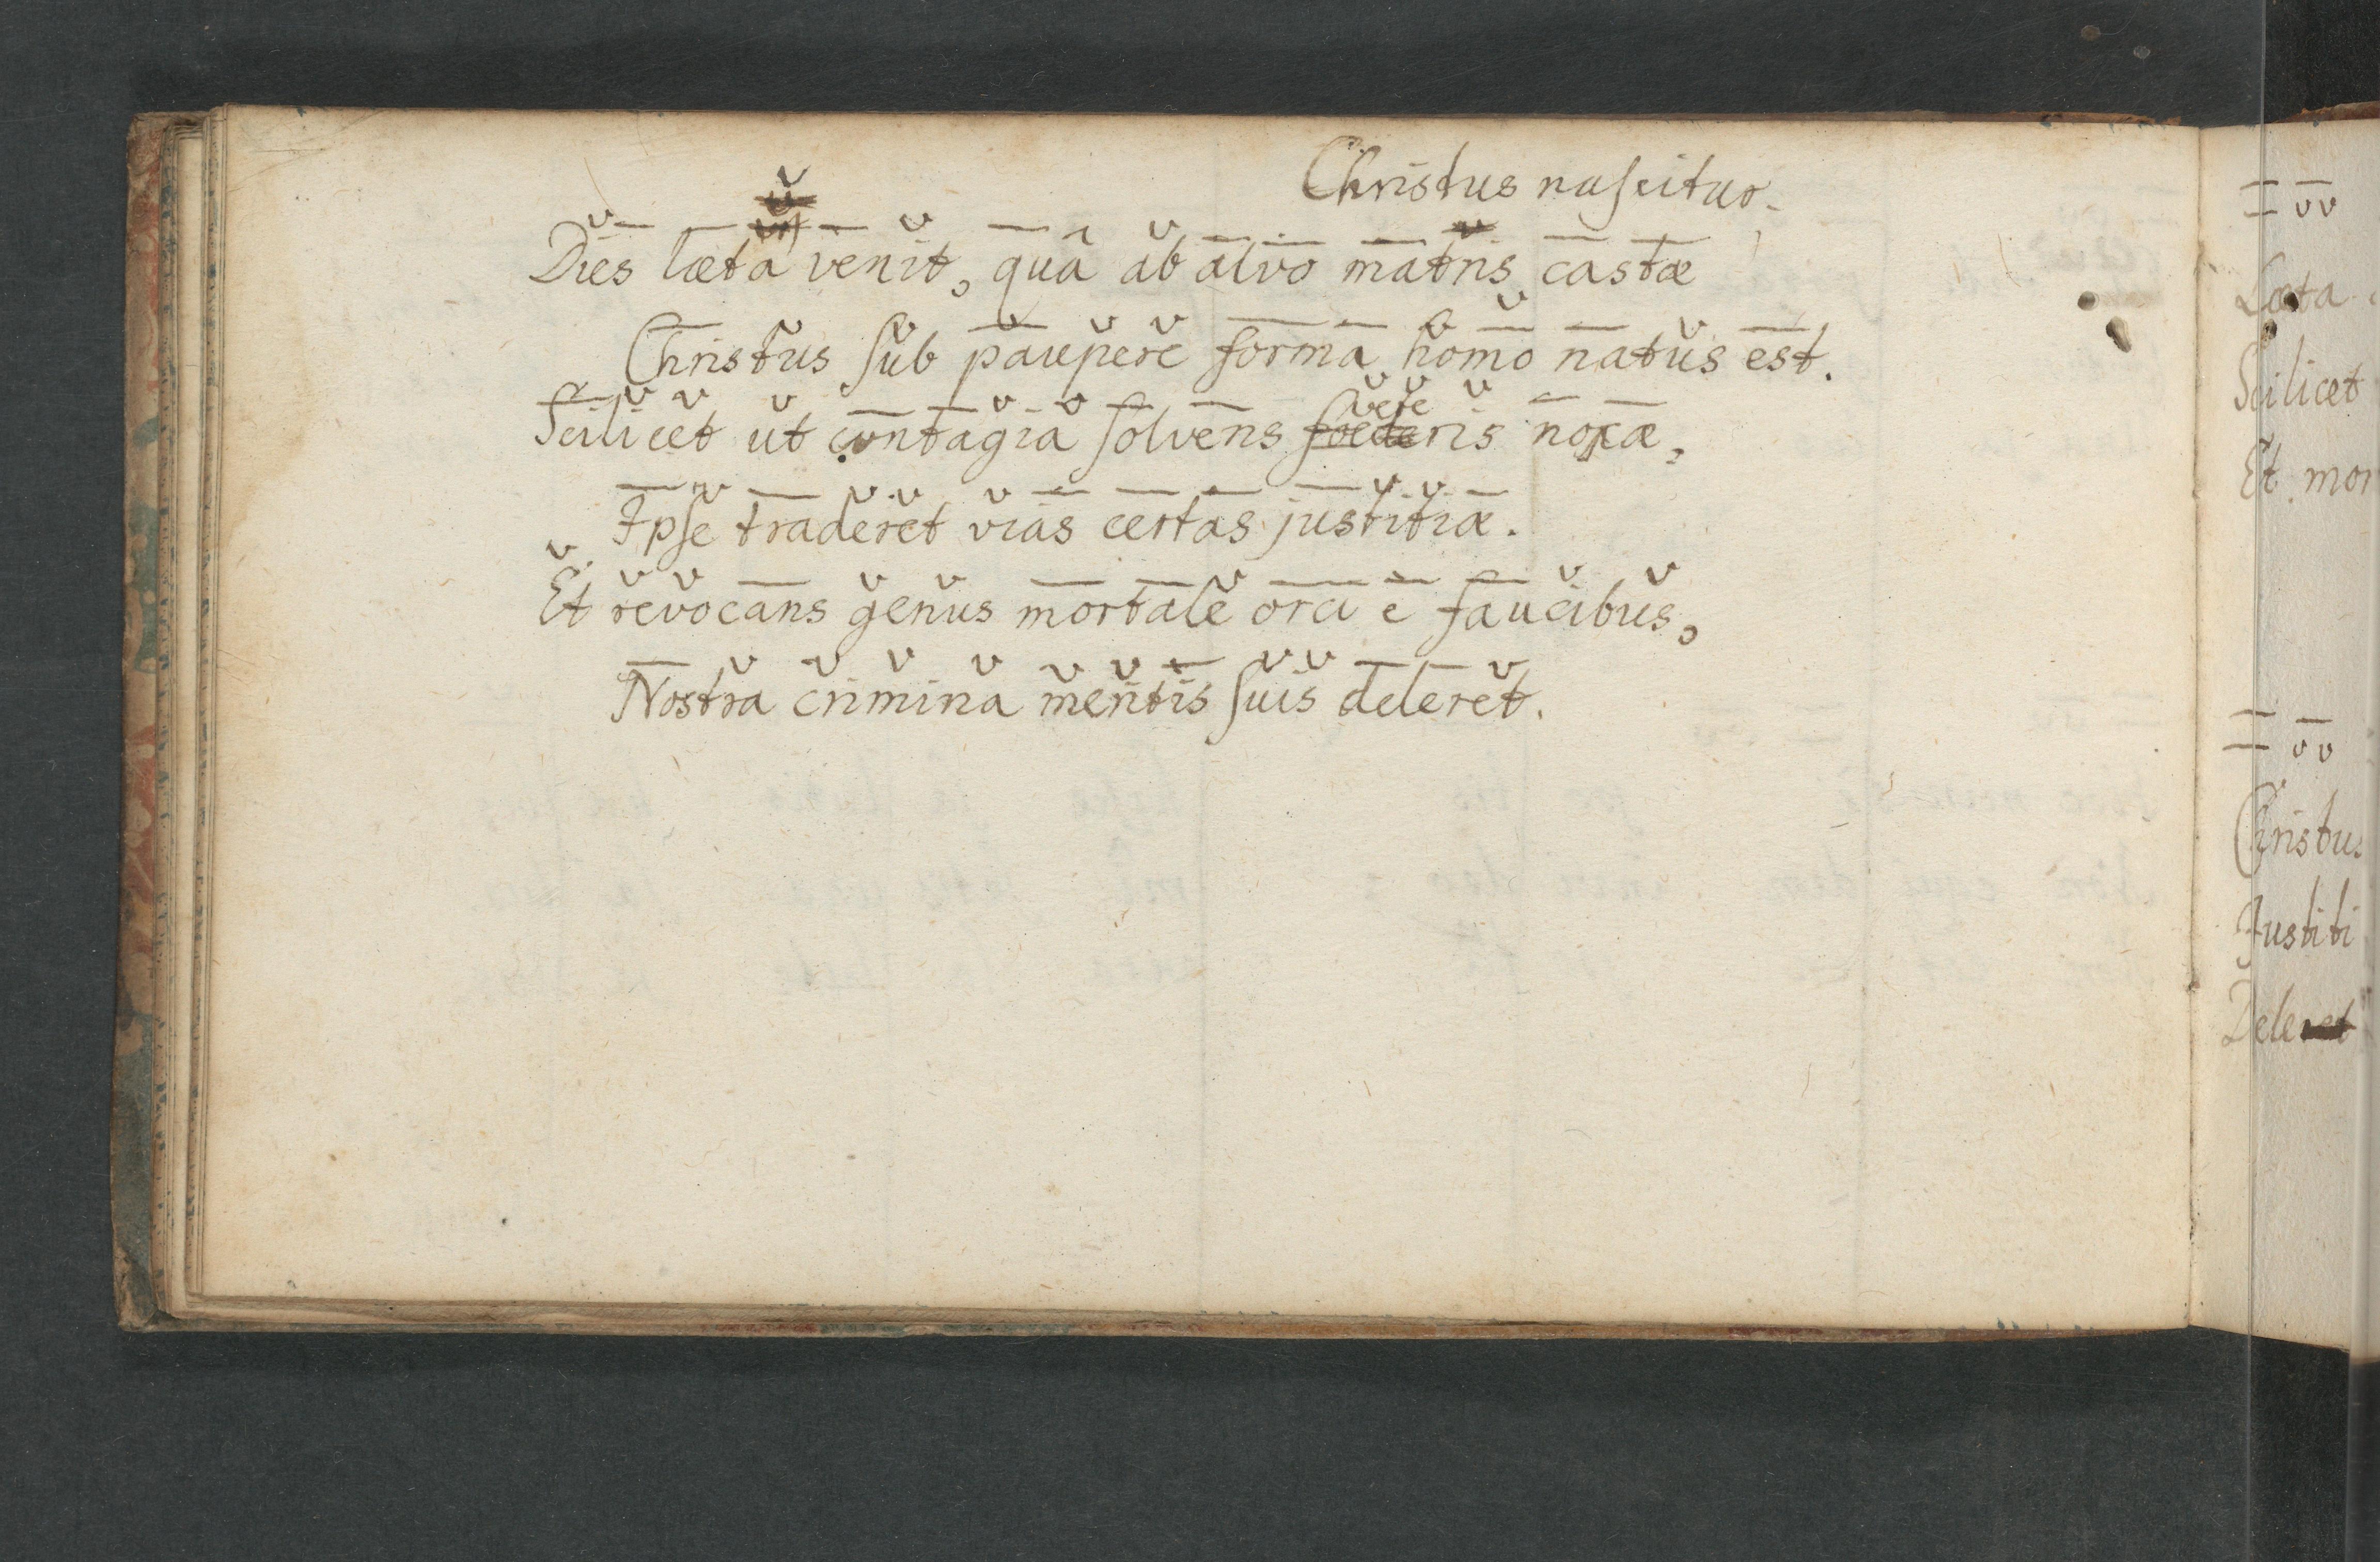 Christus nascitur.
Dies læta venit, quâ ab alvo matris castæ
Christus sub paupere forma homo natus est.
vete
Scilicet ut contagia solvens foederis noxæ,
Ipse traderet vias certas justitiæ.
Et revocans genus mortale orci e faucibus,
Nostra crimina meritis suis deleret.
Læta
Scilicet
Et mor
Christus
Justiti
Deleret